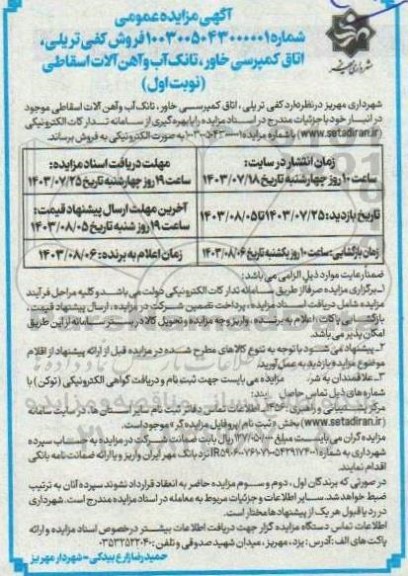 آگهی مزایده عمومی
شماره ۱۰۰۳۰۰۵۰۴۳۰۰۰۰۰۱ فروش کفی تریلی،
اتاق کمپرسی خاور، تانک آب و آهن آلات اسقاطی
(نوبت اول)
شهرداری مهریز
شهرداری مهریز در نظر دارد کفی تریلی، اتاق کمپرسی خاور، تانک آب و آهن آلات اسقاطی موجود
در انبار خود با جزئیات مندرج در اسناد مزایده را با بهره گیری از سامانه تدارکات الکترونیکی
(www.setadiran.ir) با شماره مزایده به صورت الکترونیکی به فروش برساند.
زمان انتشار در سایت:
ساعت ۱۰ روز چهارشنبه تاریخ ۱۴۰۳/۰۷/۱۸
مهلت دریافت اسناد مزایده:
ساعت ۱۹ روز چهارشنبه تاریخ ۱۴۰۳/۰۷/۲۵
تاریخ بازدید: ۱۴۰۳/۰۷/۲۵ تا ۱۴۰۳/۰۸/۰۵
آخرین مهلت ارسال پیشنهاد قیمت:
ساعت ۱۹ روز شنبه تاریخ ۱۴۰۳/۰۸/۰۵
زمان بازگشایی: ساعت ۱۰ روز یکشنبه تاریخ ۱۴۰۳/۰۸/۰۶
زمان اعلام به برنده: ۱۴۰۳/۰۸/۰۶
ضمنا رعایت موارد ذیل الزامی می باشد:
۱- برگزاری مزایده صرفا از طریق سامانه تدارکات الکترونیکی دولت می باشد و کلیه مراحل فرآیند
مزایده شامل دریافت اسناد مزایده، پرداخت تضمین شرکت در مزایده، ارسال پیشنهاد قیمت،
بازگشایی پاکات، اعلام به برنده، واریز وجه مزایده و تحویل کالا در بستر سامانه از این طریق
امکان پذیر می باشد.
۲- پیشنهاد می شود با توجه به تنوع کالاهای مطرح شده در مزایده قبل از ارائه پیشنهاد از اقلام
موضوع مزایده بازدید به عمل آورید.
۳- علاقمندان به شر مزایده می بایست جهت ثبت نام و دریافت گواهی الکترونیکی (توکن) با
شماره های ذیل تماس حاصل نمایند:
مرکز پشتیبانی و راهبری: اطلاعات تماس دفاتر ثبت نام سایر استان ها، در سایت سامانه
(www.setadiran.ir) بخش «ثبت نام/پروفایل مزایده گر» موجود است.
مزایده گران می بایست مبلغ ریال بابت ضمانت شرکت در مزایده به حساب سپرده
شهرداری به شماره نزد بانک مهر ایران واریز و یا ارائه ضمانت نامه بانکی
اقدام نمایند.
در صورتی که برندگان اول، دوم و سوم مزایده حاضر به انعقاد قرارداد نشوند سپرده آنان به ترتیب
ضبط خواهد شد. سایر اطلاعات و جزئیات مربوط به معامله در اسناد مزایده مندرج است. شهرداری
در رد یا قبول هر یک از پیشنهادها مختار است.
اطلاعات تماس دستگاه مزایده گزار جهت دریافت اطلاعات بیشتر در خصوص اسناد مزایده و ارائه
پاکت های الف: آدرس: یزد، مهریز، میدان شهید صدوقی و تلفن: ۰۳۵۳۲۵۲۲۰۴۰
حمیدرضا زارع بیدکی - شهردار مهریز